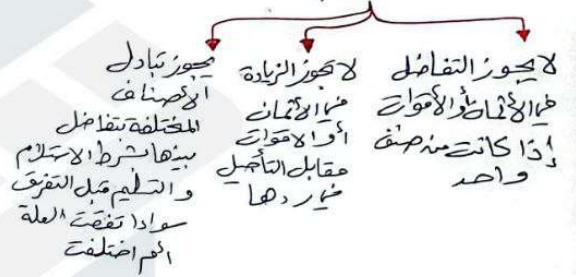 لا يجوز التفاضل
في الأثمان أو الأقوات
إذا كانت من صنف
واحد
لا تجوز الزيادة
في الأثمان
أو الاقوات
مقابل التأجيل
في ردها
يجوز تبادل
الأصناف
المختلفة بتفاضل
بينها بشرط الاستلام
والتسليم قبل التفرق
سواء اتفقت العلة
أم اختلفت